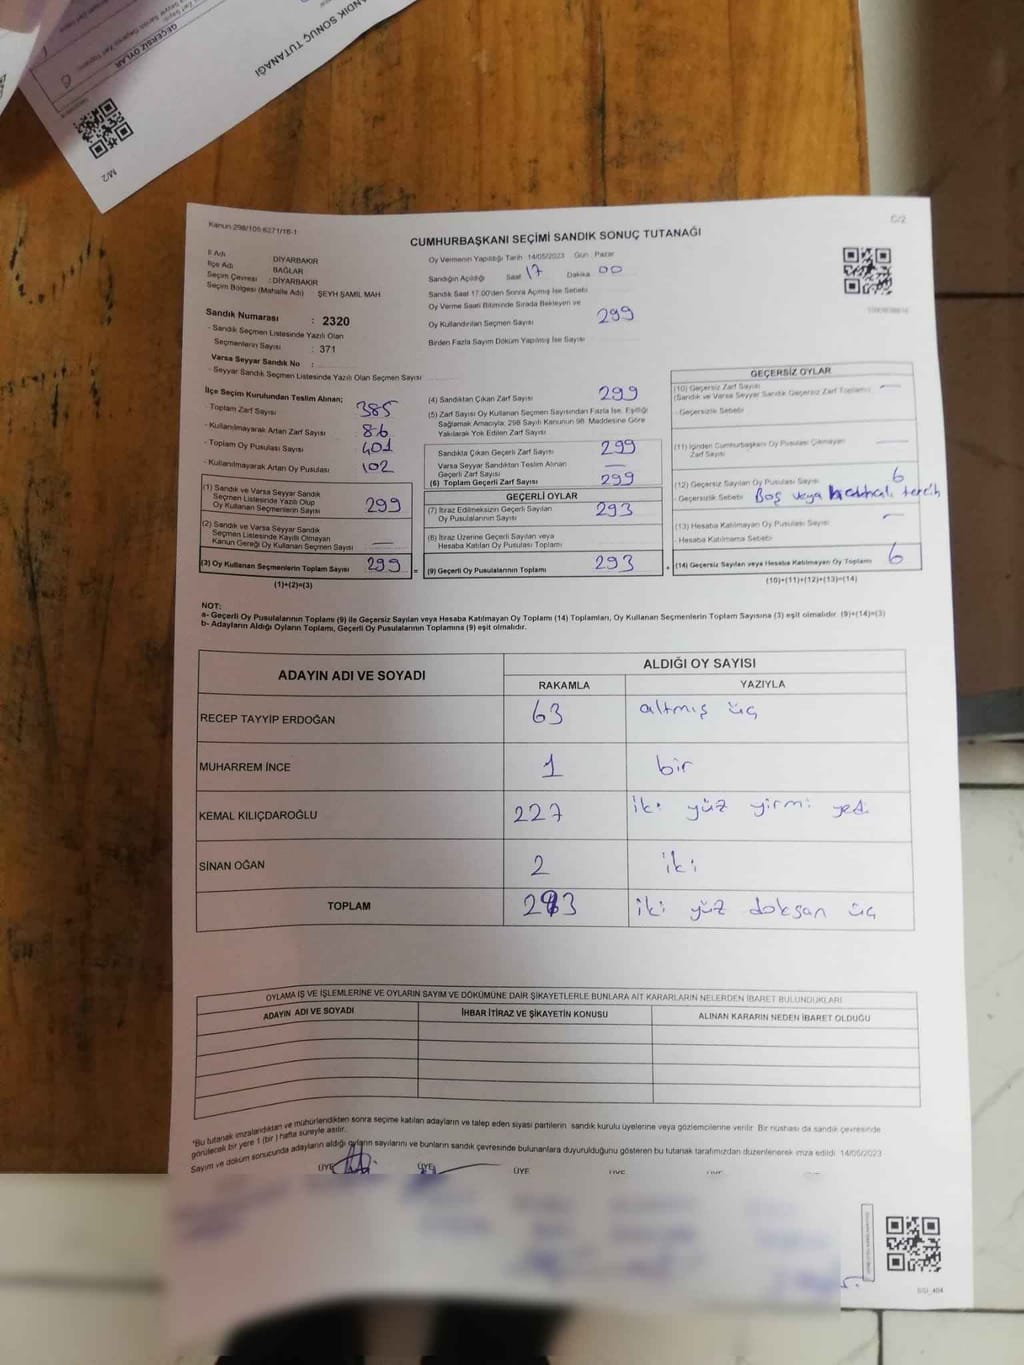 SANDIK SONUÇ TUTANAĞI
GEÇERSİZ OYLAR
6
M/2
Kanun:298/105.6271/18-1
C/2
CUMHURBAŞKANI SEÇİMİ SANDIK SONUÇ TUTANAĞI
İl Adı DİYARBAKIR
İlçe Adı BAĞLAR
Seçim Çevresi : DİYARBAKIR
Seçim Bölgesi (Mahalle Adı) ŞEYH ŞAMİL MAH
Sandık Numarası : 2320
- Sandık Seçmen Listesinde Yazılı Olan
Seçmenlerin Sayısı : 371
Varsa Seyyar Sandık No :
- Seyyar Sandık Seçmen Listesinde Yazılı Olan Seçmen Sayısı
Oy Vermenin Yapıldığı Tarih 14/05/2023 Gün Pazar
Sandığın Açıldığı Saat 17 Dakika 00
Sandık Saat 17.00'den Sonra Açılmış İse Sebebi
Oy Verme Saati Bitiminde Sırada Bekleyen ve
Oy Kullandırılan Seçmen Sayısı 299
Birden Fazla Sayım Döküm Yapılmış İse Sayısı
İlçe Seçim Kurulundan Teslim Alınan;
- Toplam Zarf Sayısı 385
- Kullanılmayarak Artan Zarf Sayısı 86
- Toplam Oy Pusulası Sayısı 401
- Kullanılmayarak Artan Oy Pusulası 102
(1) Sandık ve Varsa Seyyar Sandık
Seçmen Listesinde Yazılı Olup
Oy Kullanan Seçmenlerin Sayısı 299
(2) Sandık ve Varsa Seyyar Sandık
Seçmen Listesinde Kayıtlı Olmayan
Kanun Gereği Oy Kullanan Seçmen Sayısı —
(3) Oy Kullanan Seçmenlerin Toplam Sayısı 299
(1)+(2)=(3)
(4) Sandıktan Çıkan Zarf Sayısı 299
(5) Zarf Sayısı Oy Kullanan Seçmen Sayısından Fazla İse, Eşitliği
Sağlamak Amacıyla; 298 Sayılı Kanunun 98. Maddesine Göre
Yakılarak Yok Edilen Zarf Sayısı
Sandıkta Çıkan Geçerli Zarf Sayısı 299
Varsa Seyyar Sandıktan Teslim Alınan
Geçerli Zarf Sayısı —
(6) Toplam Geçerli Zarf Sayısı 299
GEÇERLİ OYLAR
(7) İtiraz Edilmeksizin Geçerli Sayılan
Oy Pusulalarının Sayısı 293
(8) İtiraz Üzerine Geçerli Sayılan veya
Hesaba Katılan Oy Pusulası Toplamı
(9) Geçerli Oy Pusulalarının Toplamı 293
GEÇERSİZ OYLAR
(10) Geçersiz Zarf Sayısı —
(Sandık ve Varsa Seyyar Sandık Geçersiz Zarf Toplamı)
- Geçersizlik Sebebi
(11) İçinden Cumhurbaşkanı Oy Pusulası Çıkmayan
Zarf Sayısı —
(12) Geçersiz Sayılan Oy Pusulası Sayısı 6
- Geçersizlik Sebebi Boş veya tercih
(13) Hesaba Katılmayan Oy Pusulası Sayısı —
- Hesaba Katılmama Sebebi
(14) Geçersiz Sayılan veya Hesaba Katılmayan Oy Toplamı 6
(10)+(11)+(12)+(13)=(14)
NOT:
a- Geçerli Oy Pusulalarının Toplamı (9) ile Geçersiz Sayılan veya Hesaba Katılmayan Oy Toplamı (14) Toplamları, Oy Kullanan Seçmenlerin Toplam Sayısına (3) eşit olmalıdır. (9)+(14)=(3)
b- Adayların Aldığı Oyların Toplamı, Geçerli Oy Pusulalarının Toplamına (9) eşit olmalıdır.
ADAYIN ADI VE SOYADI ALDIĞI OY SAYISI
RAKAMLA YAZIYLA
RECEP TAYYİP ERDOĞAN 63 altmış üç
MUHARREM İNCE 1 bir
KEMAL KILIÇDAROĞLU 227 iki yüz yirmi yedi
SİNAN OĞAN 2 iki
TOPLAM 293 iki yüz doksan üç
OYLAMA İŞ VE İŞLEMLERİNE VE OYLARIN SAYIM VE DÖKÜMÜNE DAİR ŞİKAYETLERLE BUNLARA AİT KARARLARIN NELERDEN İBARET BULUNDUKLARI
ADAYIN ADI VE SOYADI İHBAR İTİRAZ VE ŞİKAYETİN KONUSU ALINAN KARARIN NEDEN İBARET OLDUĞU
*Bu tutanak imzalandıktan ve mühürlendikten sonra seçime katılan adayların ve talep eden siyasi partilerin sandık kurulu üyelerine veya gözlemcilerine verilir. Bir nüshası da sandık çevresinde
görülecek bir yere 1 (bir) hafta süreyle asılır.
Sayım ve döküm sonucunda adayların aldığı oyların sayılarını ve bunların sandık çevresinde bulunanlara duyurulduğunu gösteren bu tutanak tarafımızdan düzenlenerek imza edildi. 14/05/2023
ÜYE ÜYE ÜYE